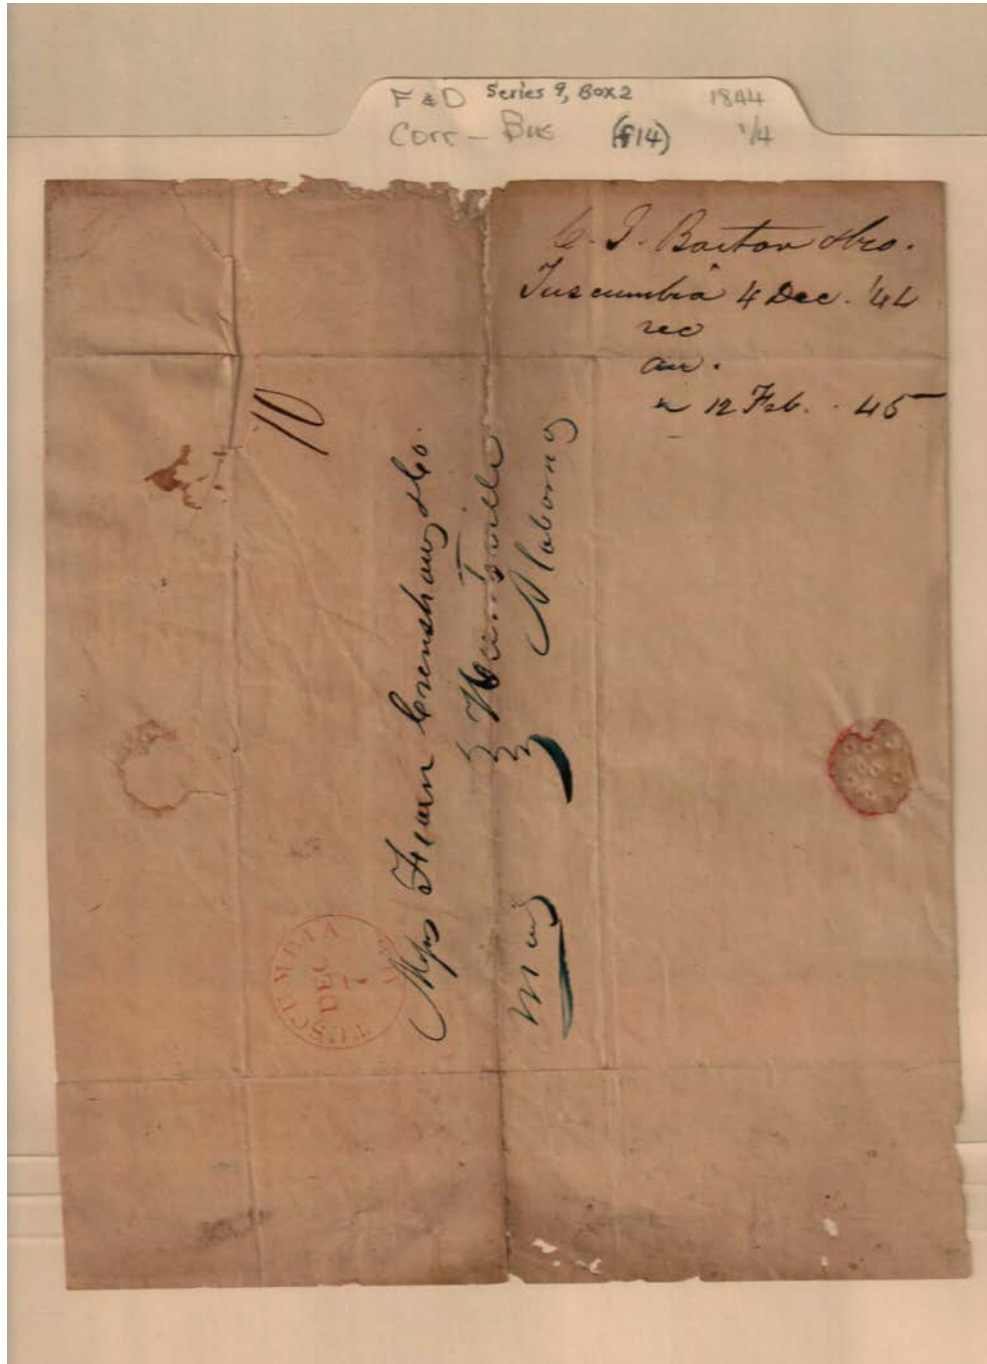 F & D Series 9, Box 2 1844
Corr - Bus (f14) 1/4
C. I. Barton & Bro.
Tuscumbia 4 Dec. '44
rec
an.
12 Feb. 45
10
Messrs Fearn Crenshaw & Co.
Huntsville
Alabama
Mail
TUSCUMBIA
DEC
7